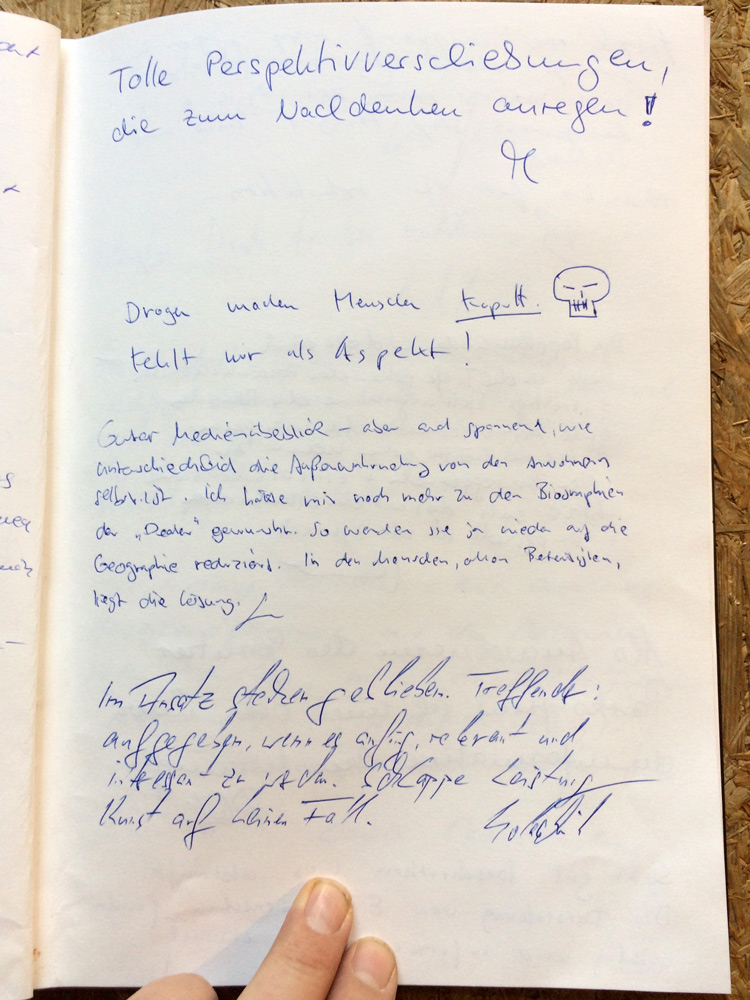 Tolle Perspektivverschießungen,
die zum Nachdenken anregen!
Drogen machen Menschen kaputt.
Fehlt mir als Aspekt!
Guter Medienüberblick – aber auch spannend, wie
unterschiedlich die Außenwahrnehmung von den Anwohnern
selbst ist. Ich hätte mir noch mehr zu den Biographien
der „Dealer" gewünscht. So werden sie ja wieder auf die
Geographie reduziert. In den Menschen, allen Beteiligten,
liegt die Lösung.
Im Ansatz stecken geblieben. Treffender:
aufgegeben, wenn es anfing, relevant und
interessant zu werden. Schlappe Leistung
Kunst auf keinen Fall.